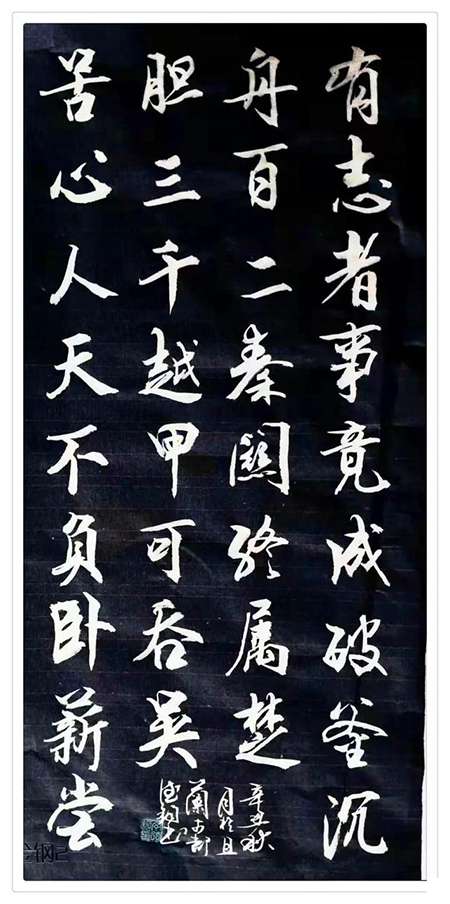 有志者事竟成破釜沉
舟百二秦關终属楚
苦心人天不负卧薪尝
胆三千越甲可吞吴
辛丑秋
月於且
蘭